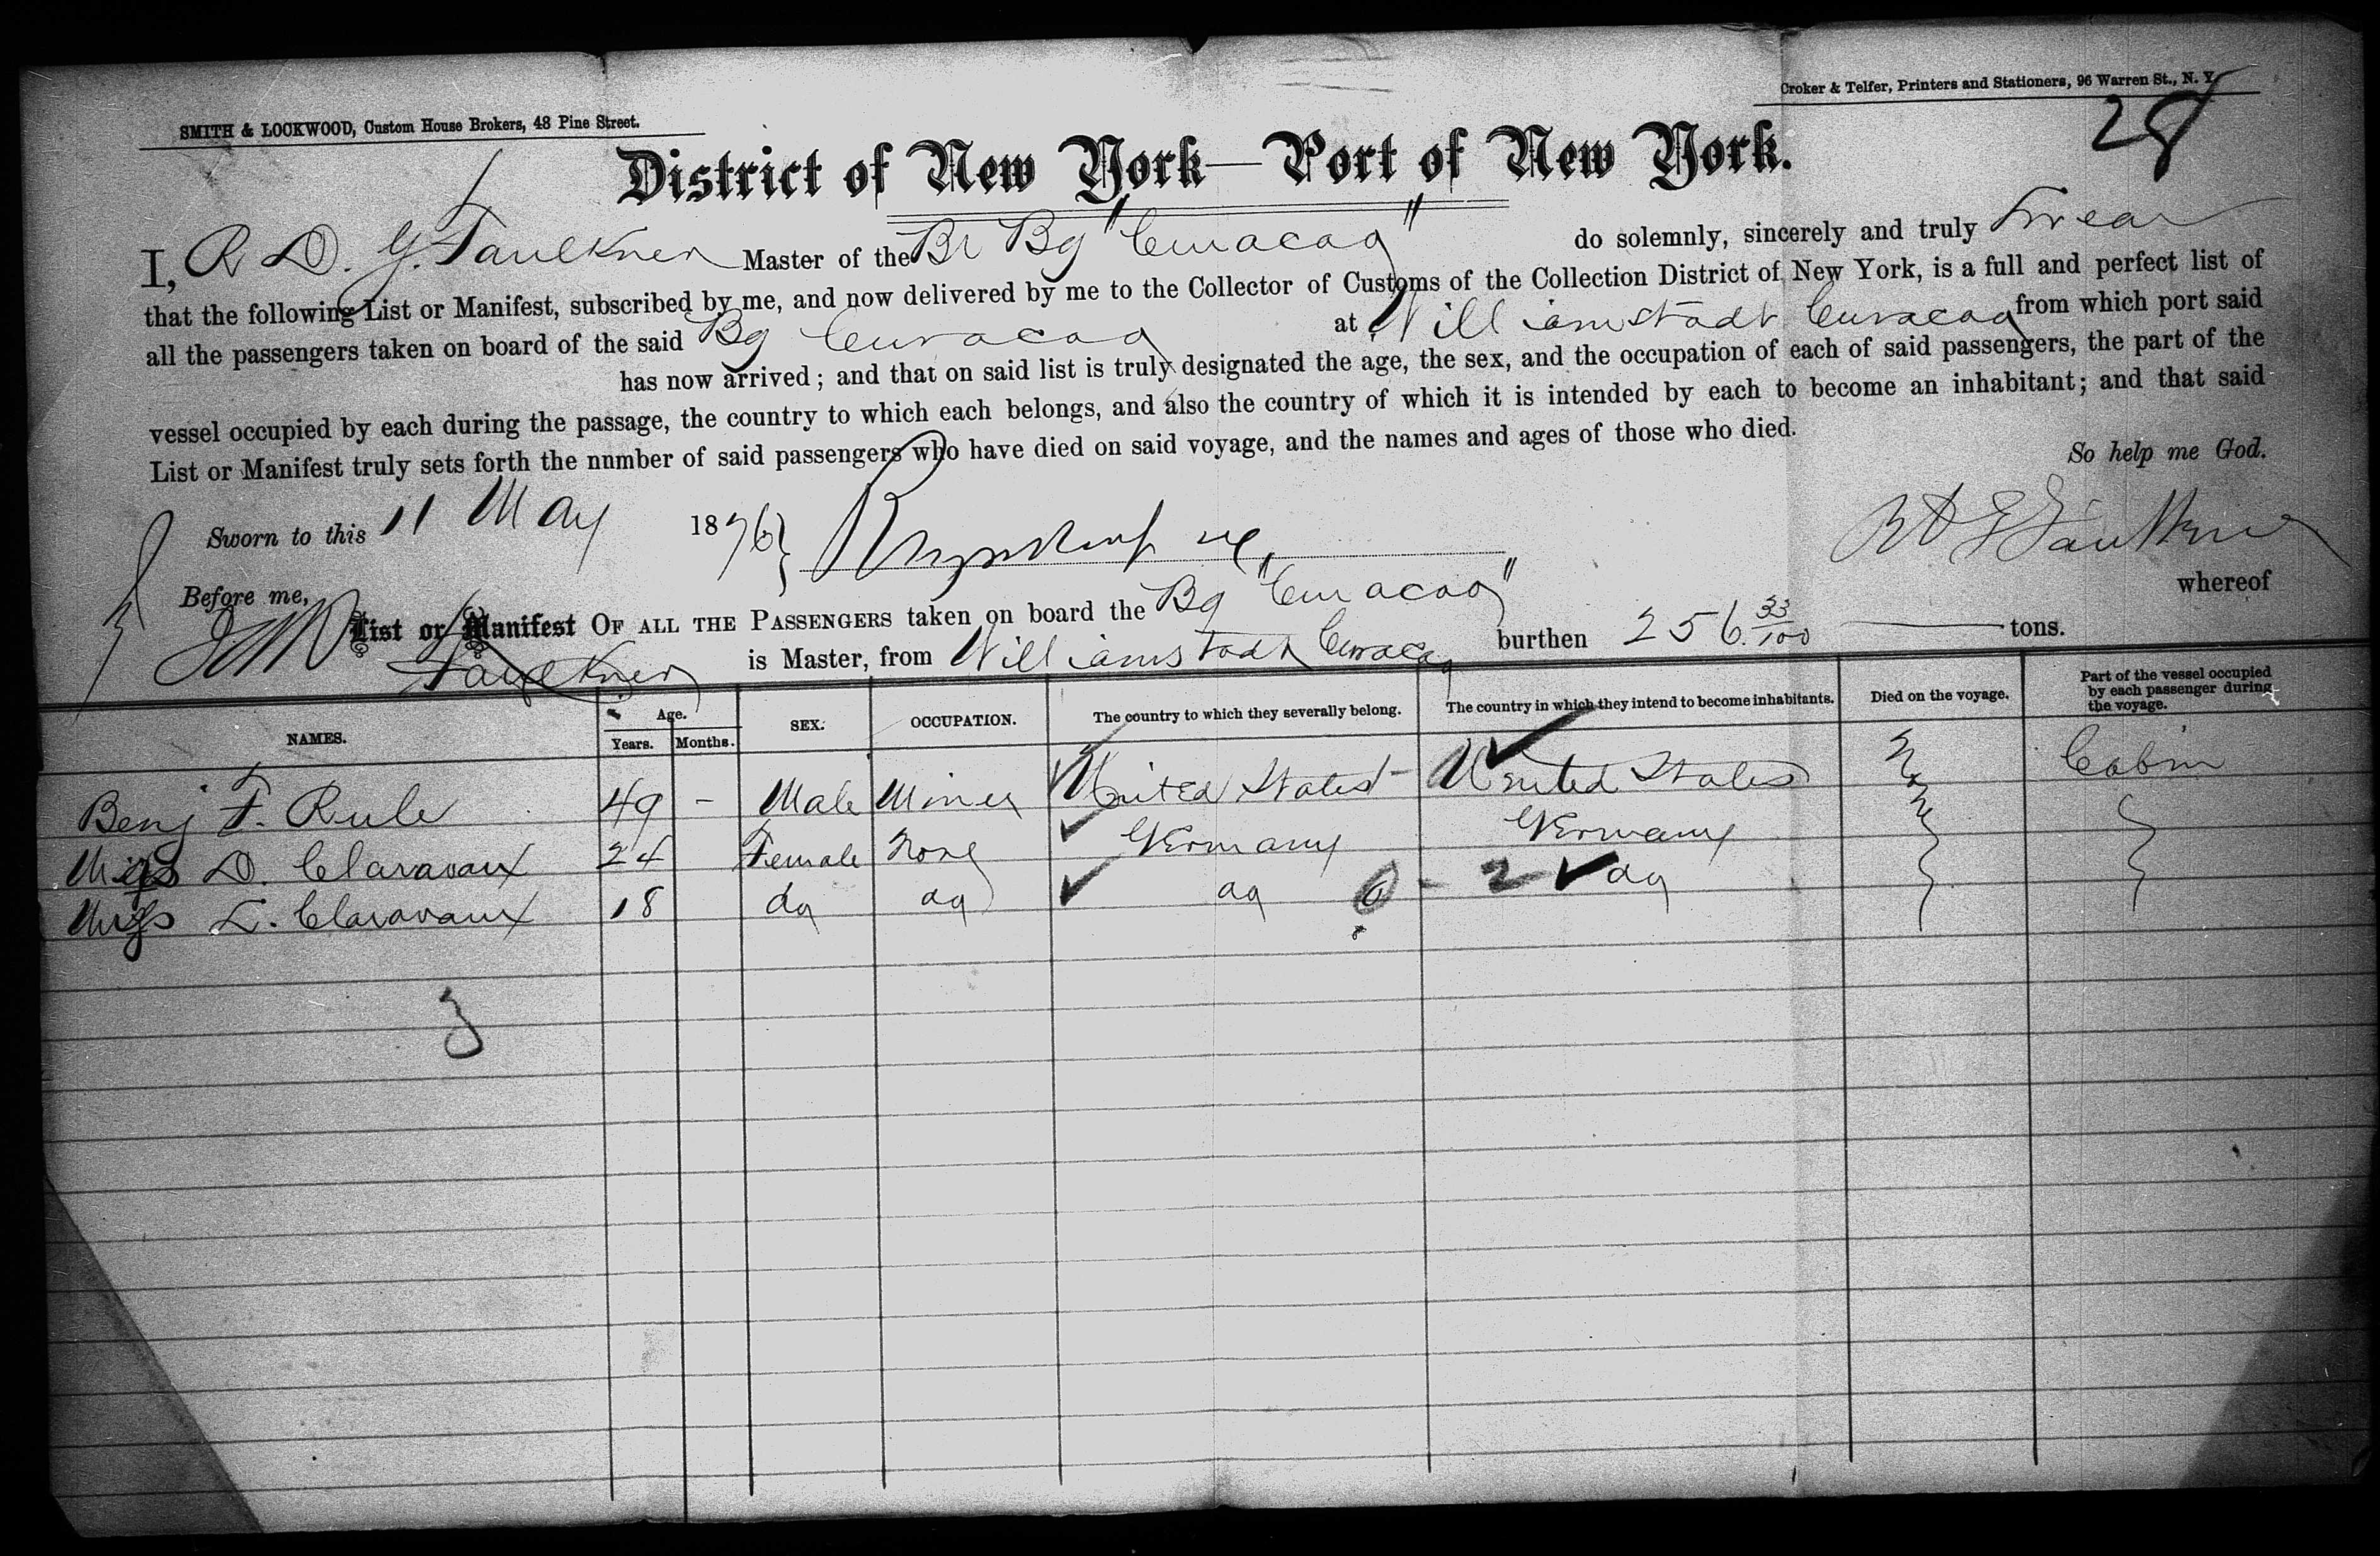 SMITH & LOCKWOOD, Custom House Brokers, 48 Pine Street.
Croker & Telfer, Printers and Stationers, 96 Warren St., N. Y.
28
District of New York—Port of New York.
I, R D. G. Faulkner Master of the Br Bg "Curacao" do solemnly, sincerely and truly Swear
that the following List or Manifest, subscribed by me, and now delivered by me to the Collector of Customs of the Collection District of New York, is a full and perfect list of
all the passengers taken on board of the said Bg Curacao at Williamstadt Curacao from which port said
has now arrived; and that on said list is truly designated the age, the sex, and the occupation of each of said passengers, the part of the
vessel occupied by each during the passage, the country to which each belongs, and also the country of which it is intended by each to become an inhabitant; and that said
List or Manifest truly sets forth the nnmber of said passengers who have died on said voyage, and the names and ages of those who died.
So help me God.
Sworn to this 11 May 1876
R D G Faulkner
Before me,
List or Manifest OF ALL THE PASSENGERS taken on board the Bg "Curacao" whereof
Faulkner is Master, from Williamstadt Curacao burthen 256 33/100 tons.
NAMES. Age. Years. Months. SEX. OCCUPATION. The country to which they severally belong. The country in which they intend to become inhabitants. Died on the voyage. Part of the vessel occupied by each passenger during the voyage.
Benj F. Rule 49 - Male Miner United States - United States Cabin
Miss D. Claravaux 24 Female None Germany Germany
Miss L. Claravaux 18 do do do 2 do
3